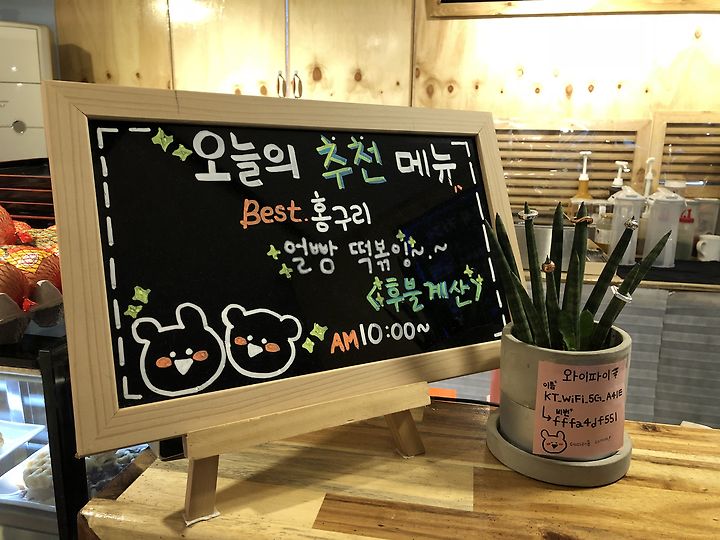 오늘의 추천 메뉴
Best.홍구리
얼빵 떡볶잉~.~
<후불계산>
AM10:00~
와이파이
이름
KT_WiFi_5G_A41E
비번
↳fffa4df551